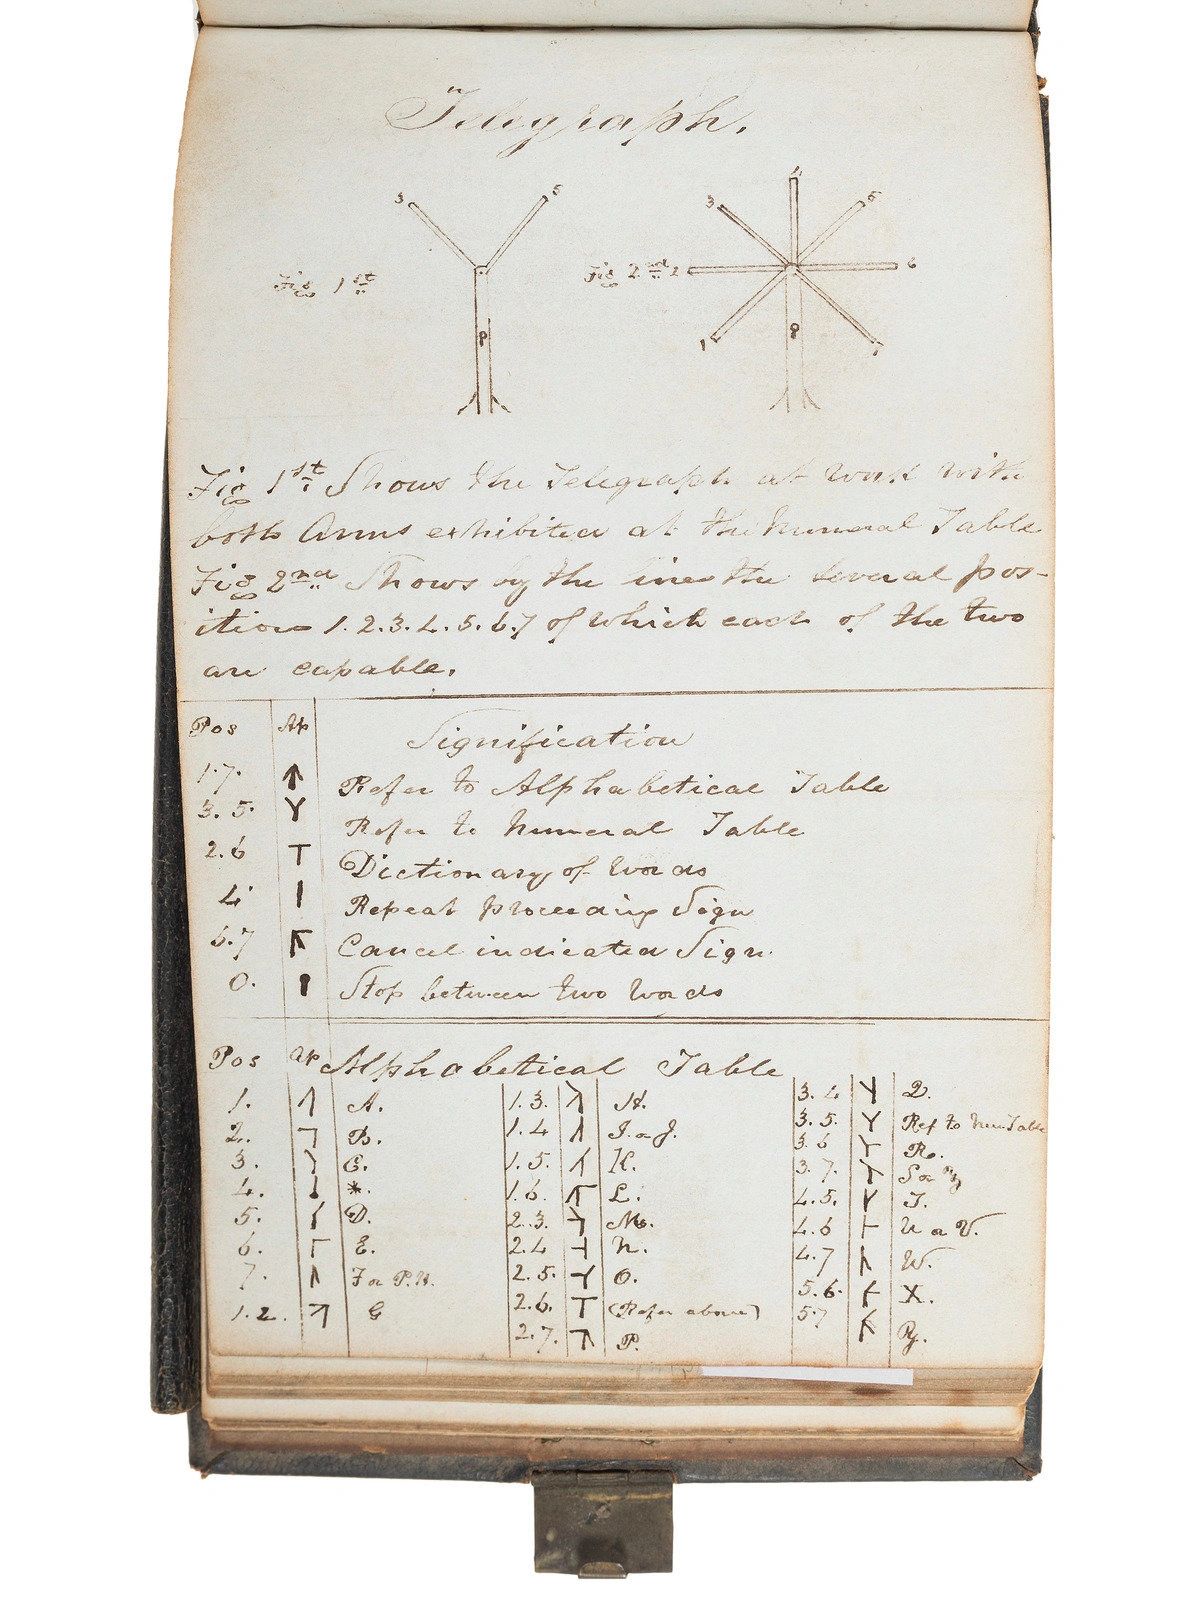 Telegraph.
3 5
4
3 5
Fig 1st
Fig 2nd 2 6
1 7
Fig 1st Shows the Telegraph at work with
both Arms exhibited at the Numeral Table
Fig 2nd Shows by the lines the several pos-
itions 1.2.3.4.5.6.7 of which each of the two
are capable.
Pos Ap Signification
1.7. Refer to Alphabetical Table
3.5. Refer to Numeral Table
2.6 Dictionary of words
4 Repeat preceeding Sign
5.7 Cancel indicated Sign.
0. Stop between two words
Pos Ap Alphabetical Table
1. A. 1.3. H. 3.4 Q.
2. B. 1.4 I. or J. 3.5. Ref to Num Table
3. C. 1.5. K. 3.6 R.
4. *. 1.6. L. 3.7. S or Z
5. D. 2.3. M. 4.5. T.
6. E. 2.4 N. 4.6 U or V.
7. F or P.H. 2.5. O. 4.7 W.
1.2. G 2.6. (Refer above) 5.6. X.
2.7. P. 5.7 Y.